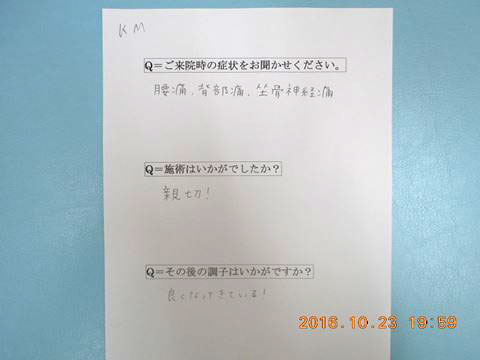 KM
Q=ご来院時の症状をお聞かせください。
腰痛、背部痛、坐骨神経痛
Q=施術はいかがでしたか?
親切!
Q=その後の調子はいかがですか?
良くなってきている!
2016.10.23 19:59